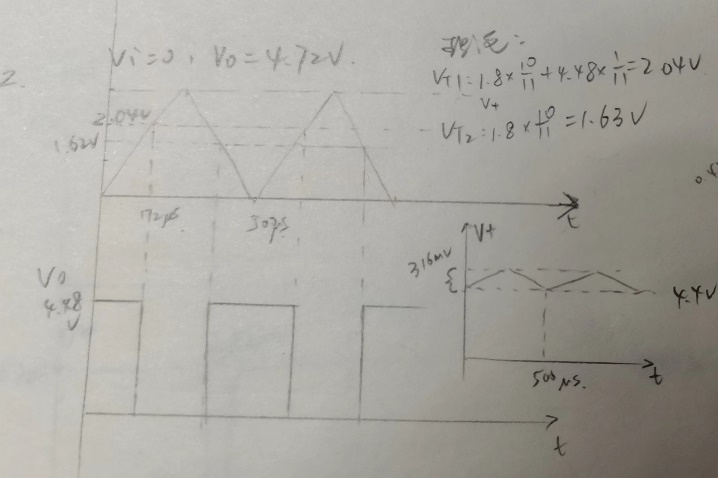 2.
Vi=0, Vo=4.72V.
理论:
VT1=1.8×10/11+4.48×1/11=2.04V
V+
VT2=1.8×10/11=1.63V
2.04V
1.62V
72μs
t
Vo
4.48
V
t
V+
316mV
4.4V
500μs.
t